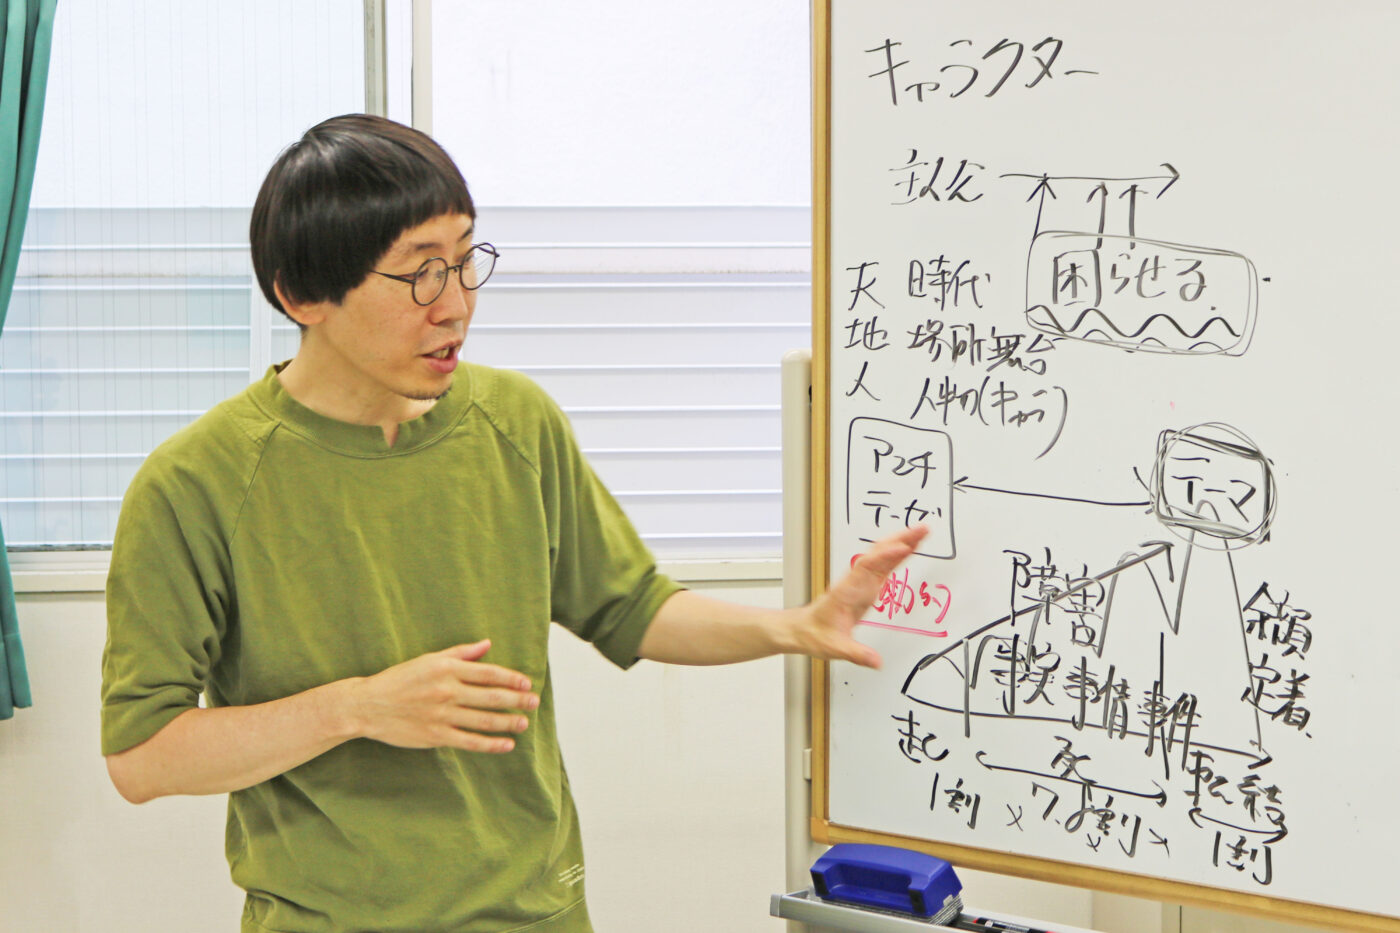 キャラクター
主人公
困らせる
天 時代
地 場所 舞台
人 人物(キャラ)
アンチ
テーゼ
テーマ
障害
事実 事情 事件
余韻
定着
起 承 転 結
1割 7.8割 1割